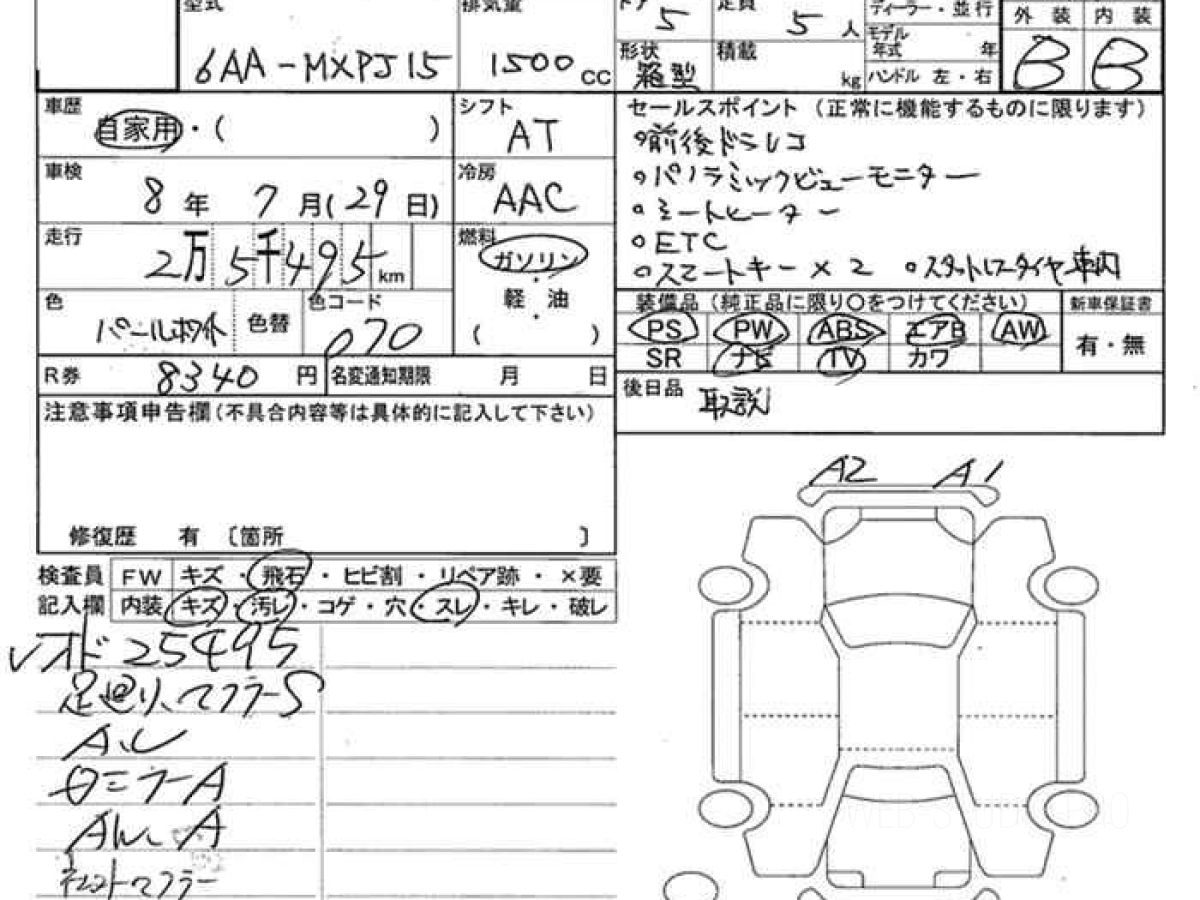 型式
6AA-MXPJ15
排気量
1500 CC
ドア
5
定員
5 人
ディーラー・並行
モデル
年式 年
ハンドル 左・右
外装 内装
B B
形状
箱型
積載
kg
車歴
自家用・( )
シフト
AT
車検
8年 7月(29日)
冷房
AAC
走行
2万5千495km
燃料
ガソリン
・
軽油
・
( )
色
パールホワイト
色替
色コード
070
R券 8340円
名変通知期限 月 日
注意事項申告欄(不具合内容等は具体的に記入して下さい)
修復歴 有 〔箇所 〕
セールスポイント (正常に機能するものに限ります)
○前後ドラレコ
○パノラミックビューモニター
○シートヒーター
○ETC
○スマートキー×2 ○スタットレスタイヤ車内
装備品(純正品に限り○をつけてください)
新車保証書
PS PW ABS エアB AW
有・無
SR ナビ TV カワ
後日品
取説
A2 A1
検査員
記入欄
FW キズ・飛石・ヒビ割・リペア跡・×要
内装 キズ・汚レ・コゲ・穴・スレ・キレ・破レ
レオド 25495
足廻り、マフラーS
A、U
ロミラーA
AW、A
WEB-STUDIO PRO